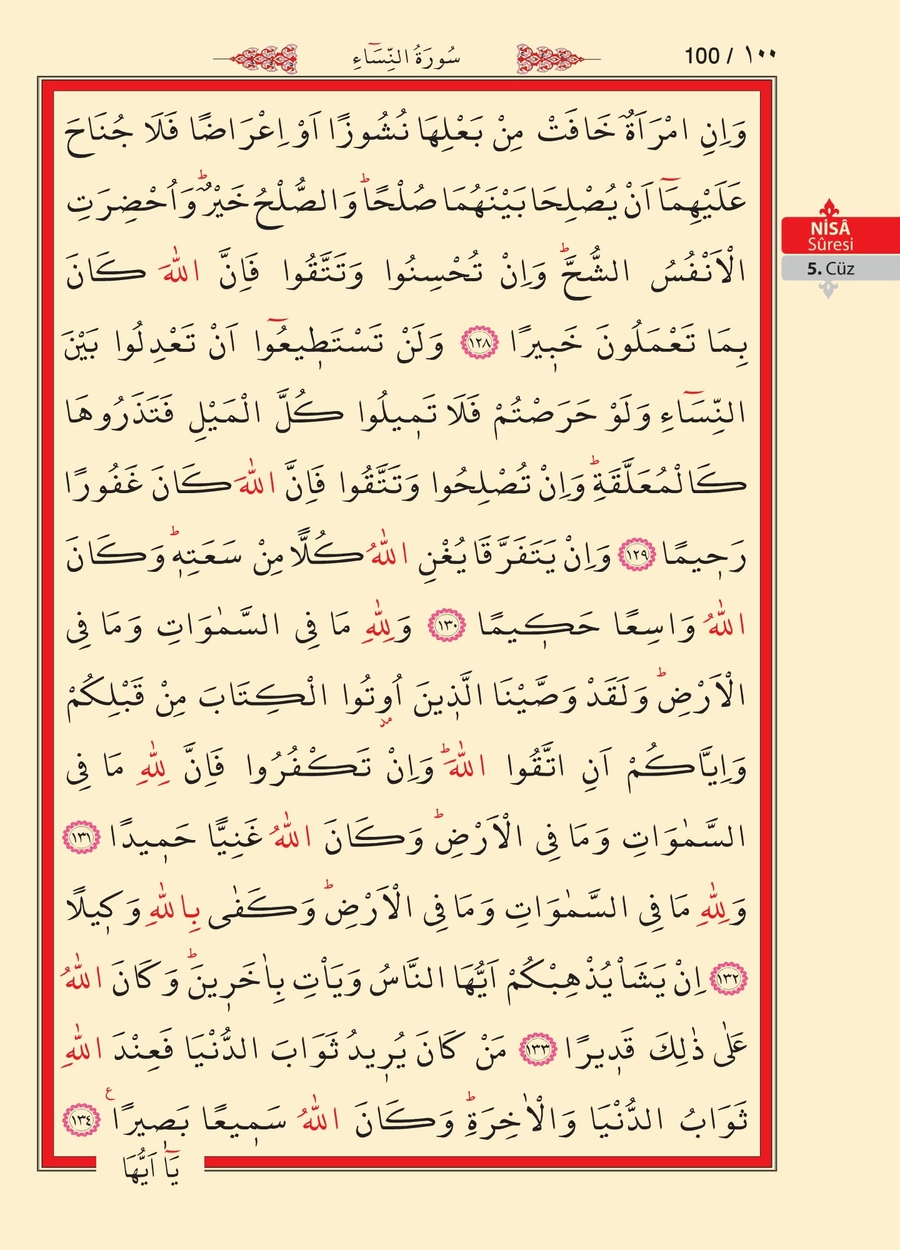 100 / ١٠٠
سُورَةُ النِّسَٓاءِ
NİSÂ
Sûresi
5. Cüz
وَاِنِ امْرَاَةٌ خَافَتْ مِنْ بَعْلِهَا نُشُوزًا اَوْ اِعْرَاضًا فَلَا جُنَاحَ
عَلَيْهِمَٓا اَنْ يُصْلِحَا بَيْنَهُمَا صُلْحًاۜ وَالصُّلْحُ خَيْرٌۜ وَاُحْضِرَتِ
الْاَنْفُسُ الشُّحَّۜ وَاِنْ تُحْسِنُوا وَتَتَّقُوا فَاِنَّ اللّٰهَ كَانَ
بِمَا تَعْمَلُونَ خَب۪يرًا ﴿١٢٨﴾ وَلَنْ تَسْتَط۪يعُٓوا اَنْ تَعْدِلُوا بَيْنَ
النِّسَٓاءِ وَلَوْ حَرَصْتُمْ فَلَا تَم۪يلُوا كُلَّ الْمَيْلِ فَتَذَرُوهَا
كَالْمُعَلَّقَةِۜ وَاِنْ تُصْلِحُوا وَتَتَّقُوا فَاِنَّ اللّٰهَ كَانَ غَفُورًا
رَح۪يمًا ﴿١٢٩﴾ وَاِنْ يَتَفَرَّقَا يُغْنِ اللّٰهُ كُلًّا مِنْ سَعَتِه۪ۜ وَكَانَ
اللّٰهُ وَاسِعًا حَك۪يمًا ﴿١٣٠﴾ وَلِلّٰهِ مَا فِي السَّمٰوَاتِ وَمَا فِي
الْاَرْضِۜ وَلَقَدْ وَصَّيْنَا الَّذ۪ينَ اُو۫تُوا الْكِتَابَ مِنْ قَبْلِكُمْ
وَاِيَّاكُمْ اَنِ اتَّقُوا اللّٰهَۜ وَاِنْ تَكْفُرُوا فَاِنَّ لِلّٰهِ مَا فِي
السَّمٰوَاتِ وَمَا فِي الْاَرْضِۜ وَكَانَ اللّٰهُ غَنِيًّا حَم۪يدًا ﴿١٣١﴾
وَلِلّٰهِ مَا فِي السَّمٰوَاتِ وَمَا فِي الْاَرْضِۜ وَكَفٰى بِاللّٰهِ وَك۪يلًا
﴿١٣٢﴾ اِنْ يَشَأْ يُذْهِبْكُمْ اَيُّهَا النَّاسُ وَيَأْتِ بِاٰخَر۪ينَۜ وَكَانَ اللّٰهُ
عَلٰى ذٰلِكَ قَد۪يرًا ﴿١٣٣﴾ مَنْ كَانَ يُر۪يدُ ثَوَابَ الدُّنْيَا فَعِنْدَ اللّٰهِ
ثَوَابُ الدُّنْيَا وَالْاٰخِرَةِۜ وَكَانَ اللّٰهُ سَم۪يعًا بَص۪يرًا۟ ﴿١٣٤﴾
يَٓا اَيُّهَا